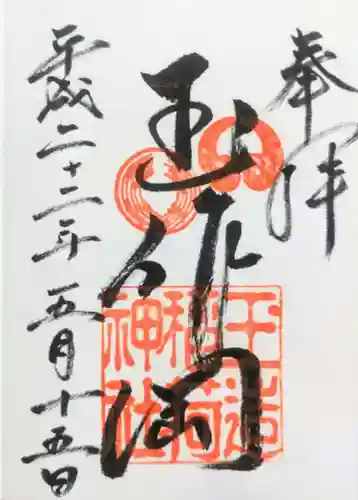 奉拝
玉作岡
平成二十二年五月十五日
玉造
稲荷
神社